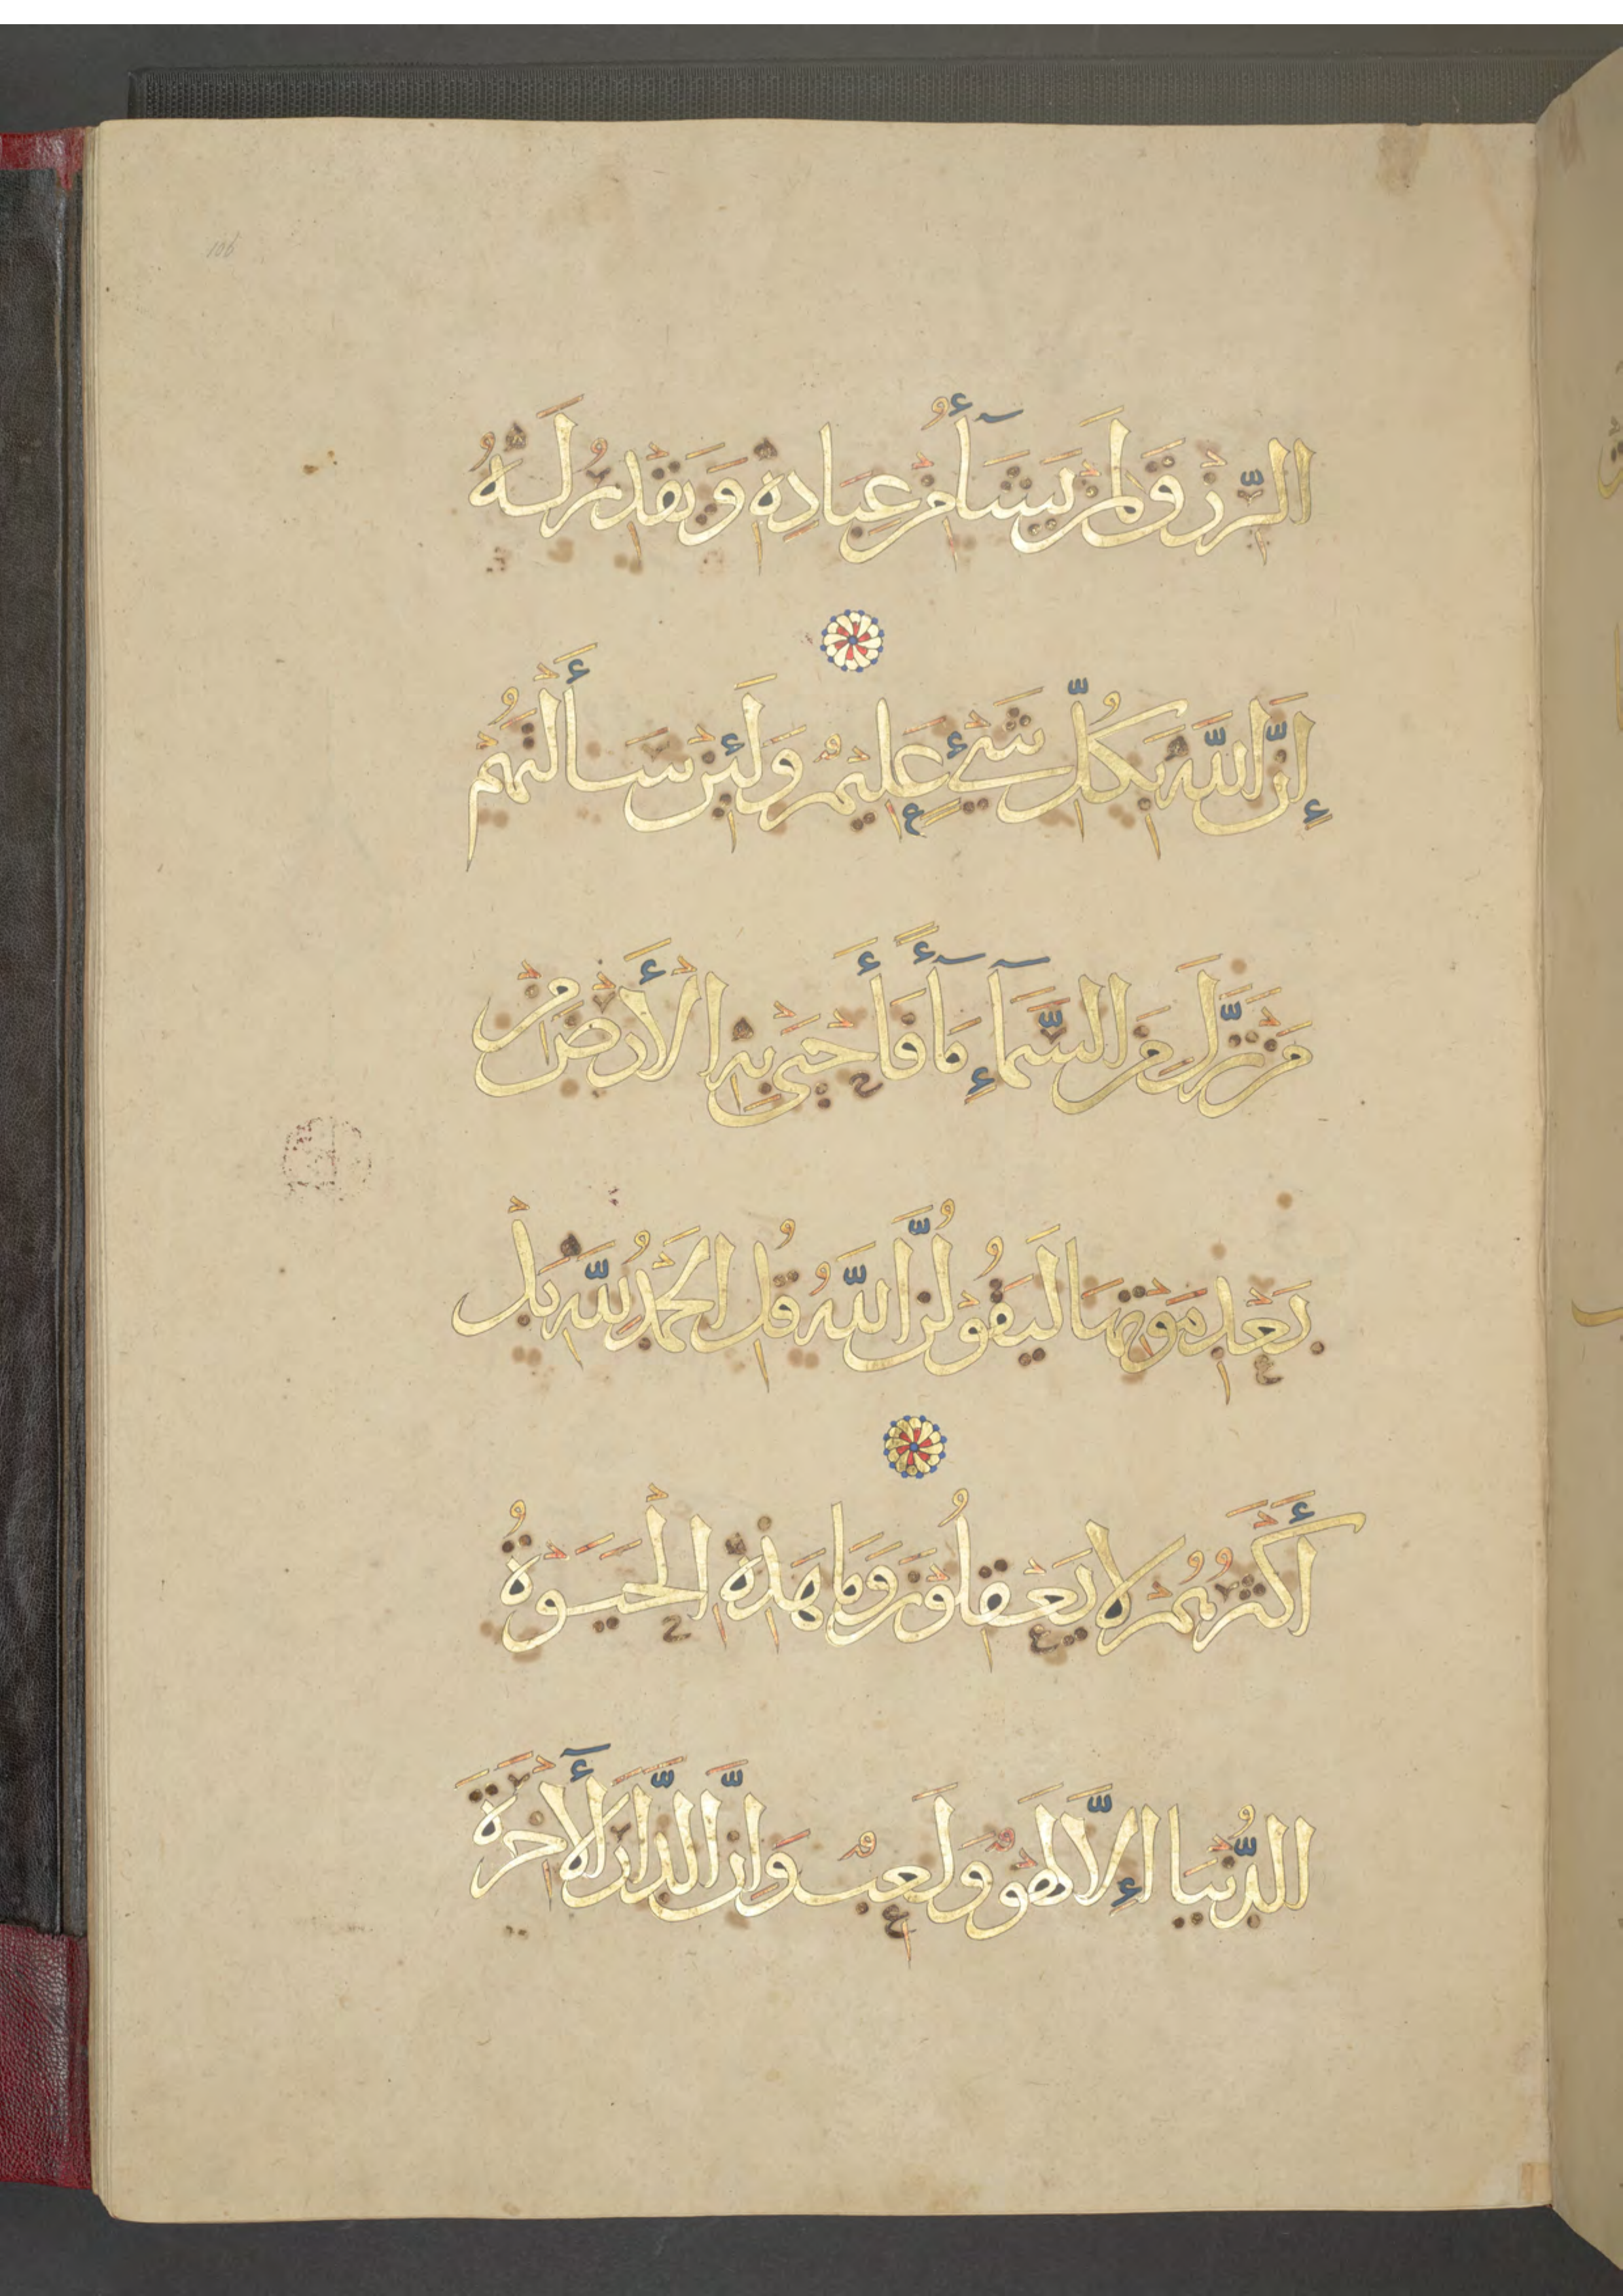 106
الرِّزْقَ لِمَنْ يَشَآءُ مِنْ عِبَادِهِ وَيَقْدِرُ لَهُ
إِنَّ اللَّهَ بِكُلِّ شَيْءٍ عَلِيمٌ وَلَئِنْ سَأَلْتَهُمْ
مَنْ نَزَّلَ مِنَ السَّمَآءِ مَآءً فَأَحْيَى بِهِ الْأَرْضَ مِنْ
بَعْدِ مَوْتِهَا لَيَقُولُنَّ اللَّهُ قُلِ الْحَمْدُ لِلَّهِ بَلْ
أَكْثَرُهُمْ لَا يَعْقِلُونَ وَمَا هَذِهِ الْحَيَوةُ
الدُّنْيَا إِلَّا لَهْوٌ وَلَعِبٌ وَإِنَّ الدَّارَ الْآخِرَةَ